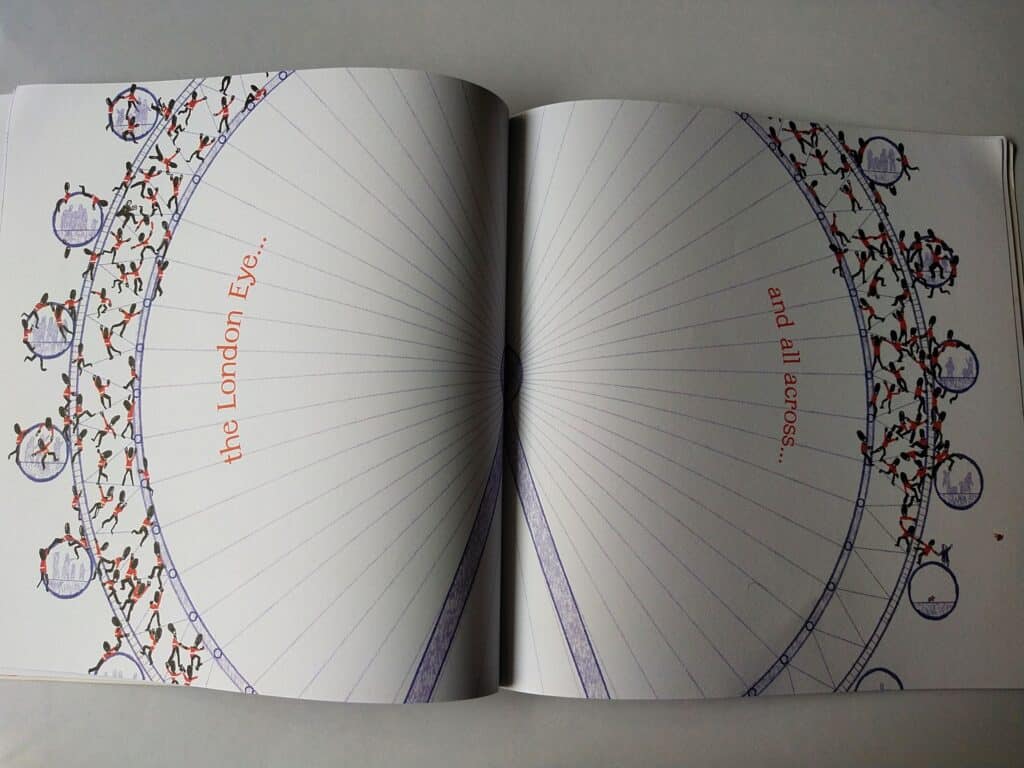 the London Eye...
and all across...